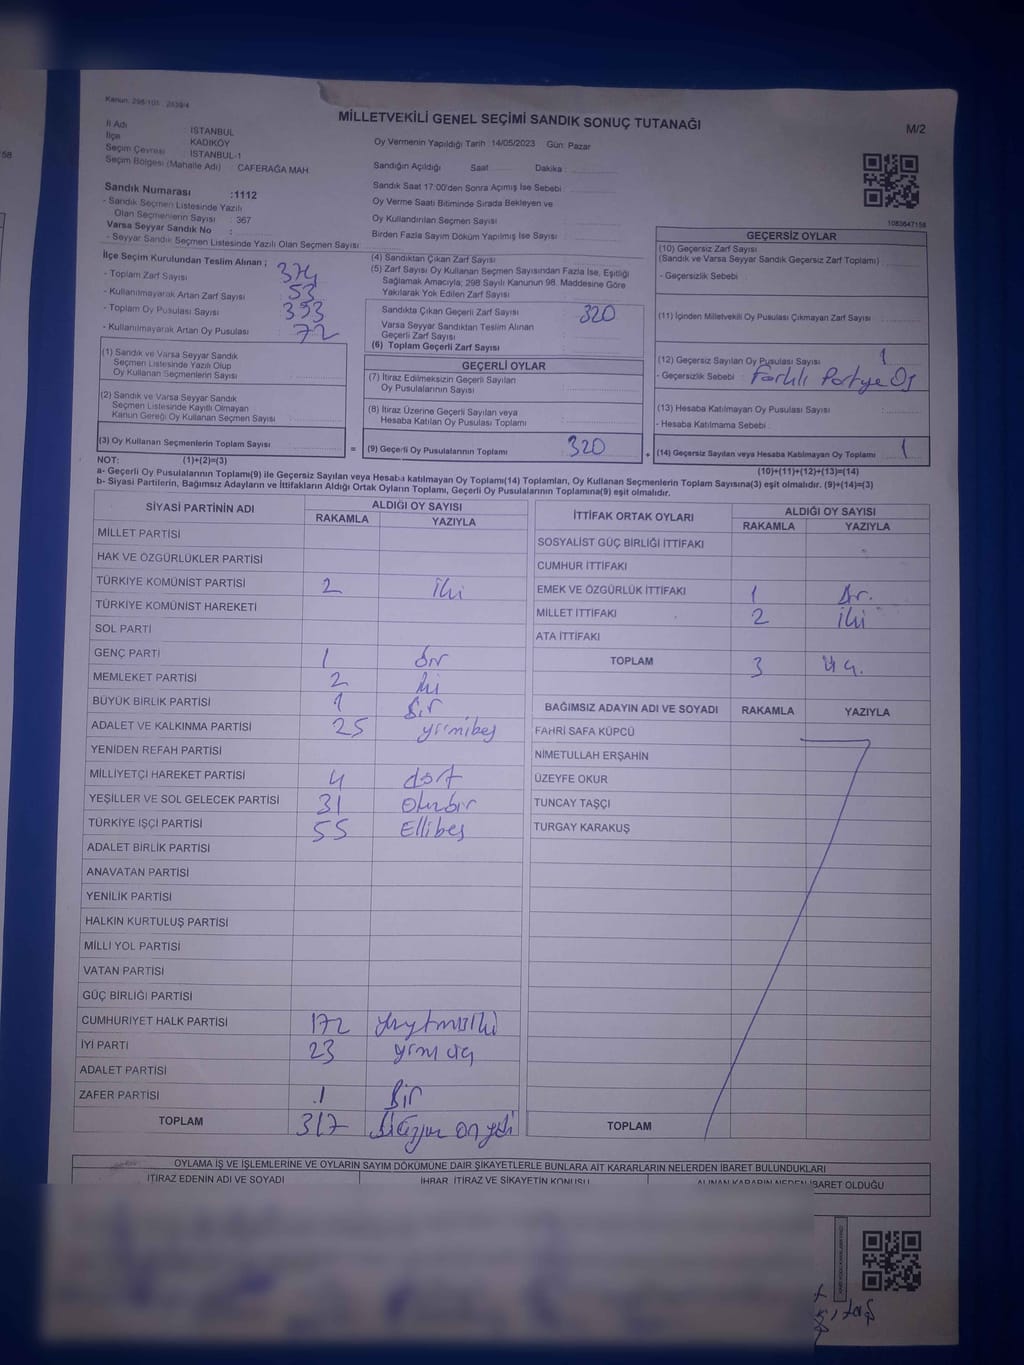 Kanun: 298/105 , 2839/4
MİLLETVEKİLİ GENEL SEÇİMİ SANDIK SONUÇ TUTANAĞI
M/2
İl Adı İSTANBUL
İlçe KADIKÖY
Seçim Çevresi İSTANBUL-1
Seçim Bölgesi (Mahalle Adı) CAFERAĞA MAH.
Oy Vermenin Yapıldığı Tarih :14/05/2023 Gün: Pazar
Sandığın Açıldığı Saat Dakika :
Sandık Saat 17:00'den Sonra Açılmış İse Sebebi :
Oy Verme Saati Bitiminde Sırada Bekleyen ve
Oy Kullandırılan Seçmen Sayısı
Birden Fazla Sayım Döküm Yapılmış İse Sayısı :
1083647158
Sandık Numarası :1112
- Sandık Seçmen Listesinde Yazılı
Olan Seçmenlerin Sayısı : 367
Varsa Seyyar Sandık No :
- Seyyar Sandık Seçmen Listesinde Yazılı Olan Seçmen Sayısı :
İlçe Seçim Kurulundan Teslim Alınan ;
- Toplam Zarf Sayısı 374
- Kullanılmayarak Artan Zarf Sayısı 53
- Toplam Oy Pusulası Sayısı 393
- Kullanılmayarak Artan Oy Pusulası 72
(1) Sandık ve Varsa Seyyar Sandık
Seçmen Listesinde Yazılı Olup
Oy Kullanan Seçmenlerin Sayısı
(2) Sandık ve Varsa Seyyar Sandık
Seçmen Listesinde Kayıtlı Olmayan
Kanun Gereği Oy Kullanan Seçmen Sayısı :
(3) Oy Kullanan Seçmenlerin Toplam Sayısı
(4) Sandıktan Çıkan Zarf Sayısı
(5) Zarf Sayısı Oy Kullanan Seçmen Sayısından Fazla İse, Eşitliği
Sağlamak Amacıyla, 298 Sayılı Kanunun 98. Maddesine Göre
Yakılarak Yok Edilen Zarf Sayısı :
Sandıkta Çıkan Geçerli Zarf Sayısı 320
Varsa Seyyar Sandıktan Teslim Alınan
Geçerli Zarf Sayısı
(6) Toplam Geçerli Zarf Sayısı
GEÇERLİ OYLAR
(7) İtiraz Edilmeksizin Geçerli Sayılan
Oy Pusulalarının Sayısı
(8) İtiraz Üzerine Geçerli Sayılan veya
Hesaba Katılan Oy Pusulası Toplamı
= (9) Geçerli Oy Pusulalarının Toplamı 320
GEÇERSİZ OYLAR
(10) Geçersiz Zarf Sayısı
(Sandık ve Varsa Seyyar Sandık Geçersiz Zarf Toplamı) :
- Geçersizlik Sebebi :
(11) İçinden Milletvekili Oy Pusulası Çıkmayan Zarf Sayısı
(12) Geçersiz Sayılan Oy Pusulası Sayısı 1
- Geçersizlik Sebebi : Farklı Partiye Oy
(13) Hesaba Katılmayan Oy Pusulası Sayısı
- Hesaba Katılmama Sebebi :
+ (14) Geçersiz Sayılan veya Hesaba Katılmayan Oy Toplamı 1
NOT: (1)+(2)=(3) (10)+(11)+(12)+(13)=(14)
a- Geçerli Oy Pusulalarının Toplamı(9) ile Geçersiz Sayılan veya Hesaba katılmayan Oy Toplamı(14) Toplamları, Oy Kullanan Seçmenlerin Toplam Sayısına(3) eşit olmalıdır. (9)+(14)=(3)
b- Siyasi Partilerin, Bağımsız Adayların ve İttifakların Aldığı Ortak Oyların Toplamı, Geçerli Oy Pusulalarının Toplamına(9) eşit olmalıdır.
SİYASİ PARTİNİN ADI ALDIĞI OY SAYISI
RAKAMLA YAZIYLA
MİLLET PARTİSİ
HAK VE ÖZGÜRLÜKLER PARTİSİ
TÜRKİYE KOMÜNİST PARTİSİ 2 iki
TÜRKİYE KOMÜNİST HAREKETİ
SOL PARTİ
GENÇ PARTİ 1 bir
MEMLEKET PARTİSİ 2 iki
BÜYÜK BİRLİK PARTİSİ 1 Bir
ADALET VE KALKINMA PARTİSİ 25 yirmibeş
YENİDEN REFAH PARTİSİ
MİLLİYETÇİ HAREKET PARTİSİ 4 dört
YEŞİLLER VE SOL GELECEK PARTİSİ 31 Otuzbir
TÜRKİYE İŞÇİ PARTİSİ 55 Ellibeş
ADALET BİRLİK PARTİSİ
ANAVATAN PARTİSİ
YENİLİK PARTİSİ
HALKIN KURTULUŞ PARTİSİ
MİLLİ YOL PARTİSİ
VATAN PARTİSİ
GÜÇ BİRLİĞİ PARTİSİ
CUMHURİYET HALK PARTİSİ 172
İYİ PARTİ 23 yirmi üç
ADALET PARTİSİ
ZAFER PARTİSİ 1 Bir
TOPLAM 317 üçyüz on yedi
İTTİFAK ORTAK OYLARI ALDIĞI OY SAYISI
RAKAMLA YAZIYLA
SOSYALİST GÜÇ BİRLİĞİ İTTİFAKI
CUMHUR İTTİFAKI
EMEK VE ÖZGÜRLÜK İTTİFAKI 1 Bir.
MİLLET İTTİFAKI 2 iki
ATA İTTİFAKI
TOPLAM 3 üç.
BAĞIMSIZ ADAYIN ADI VE SOYADI RAKAMLA YAZIYLA
FAHRİ SAFA KÜPCÜ
NİMETULLAH ERŞAHİN
ÜZEYFE OKUR
TUNCAY TAŞÇI
TURGAY KARAKUŞ
TOPLAM
OYLAMA İŞ VE İŞLEMLERİNE VE OYLARIN SAYIM DÖKÜMÜNE DAİR ŞİKAYETLERLE BUNLARA AİT KARARLARIN NELERDEN İBARET BULUNDUKLARI
İTİRAZ EDENİN ADI VE SOYADI İHBAR, İTİRAZ VE ŞİKAYETİN KONUSU ALINAN KARARIN NEDEN İBARET OLDUĞU